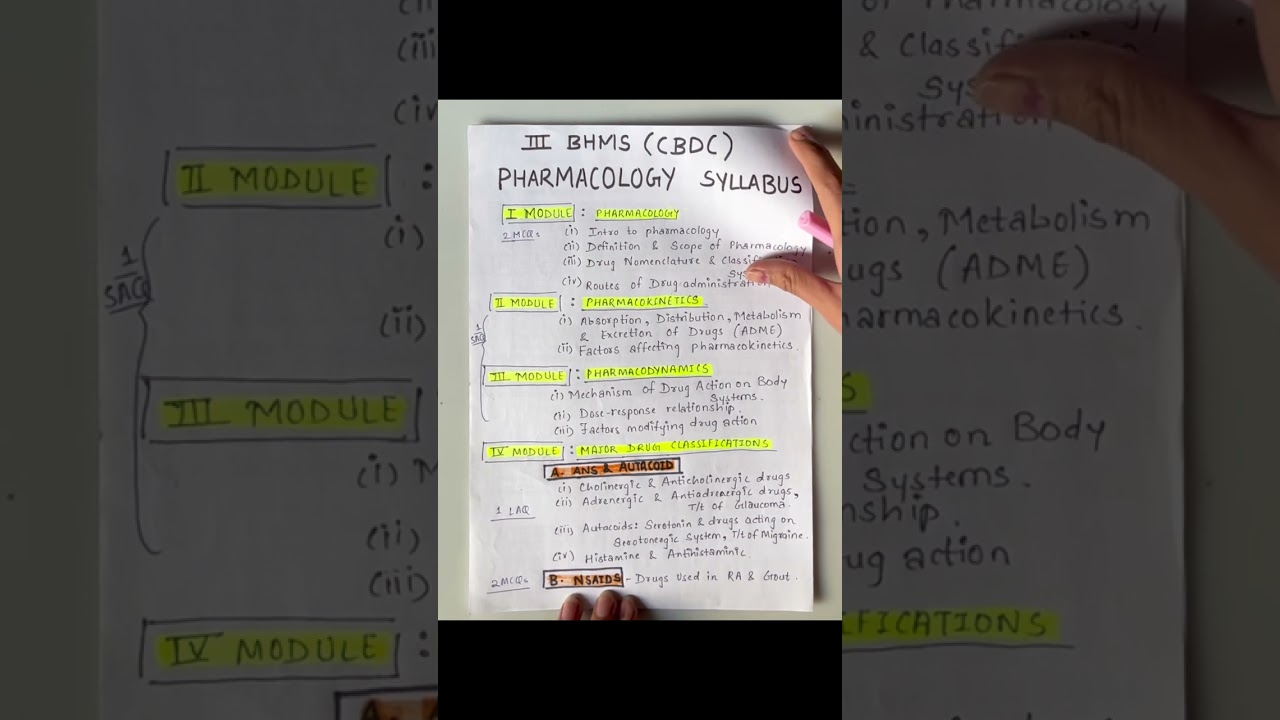 III BHMS (CBDC)
PHARMACOLOGY SYLLABUS
I MODULE : PHARMACOLOGY
2 MCQs
(i) Intro to pharmacology
(ii) Definition & Scope of Pharmacology
(iii) Drug Nomenclature & Classification
Sys
(iv) Routes of Drug administration
II MODULE : PHARMACOKINETICS
1 SAQ
(i) Absorption, Distribution, Metabolism
& Excretion of Drugs (ADME)
(ii) Factors affecting pharmacokinetics.
III MODULE : PHARMACODYNAMICS
(i) Mechanism of Drug Action on Body
Systems.
(ii) Dose-response relationship.
(iii) Factors modifying drug action
IV MODULE : MAJOR DRUG CLASSIFICATIONS
A. ANS & AUTACOID
(i) Cholinergic & Anticholinergic drugs
(ii) Adrenergic & Antiadrenergic drugs,
T/t of Glaucoma.
1 LAQ
(iii) Autacoids: Serotonin & drugs acting on
Serotonergic System, T/t of Migraine.
(iv) Histamine & Antihistaminic.
2 MCQs B. NSAIDS - Drugs used in RA & Gout.